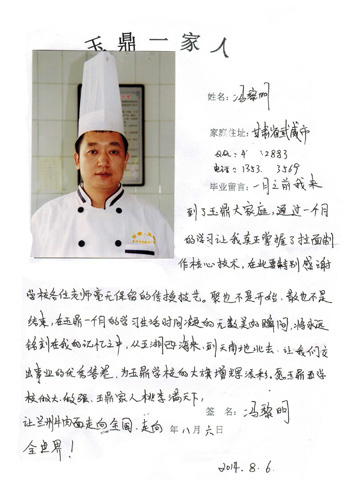 玉鼎一家人
姓名：冯黎明
家庭住址：甘肃省武威市
QQ：4 12883
电话：1353 3569
毕业留言：一月之前我来
到了玉鼎大家庭，通过一个月
的学习让我真正掌握了拉面制
作核心技术，在此要特别感谢
学校各位老师毫无保留的传授技艺。聚也不是开始，散也不是
结束，在玉鼎一个月的学习生活时间凝的无数美的瞬间，将永远
铭刻在我的记忆之中，从五湖四海来，到天南地北去，让我们交
出事业的优秀答卷，为玉鼎学校的大旗增辉添彩。愿玉鼎
校做大、做强，玉鼎家人桃李满天下，
让兰州牛肉面走向全国，走向
全世界！
签名：冯黎明
年八月六日
2014.8.6.